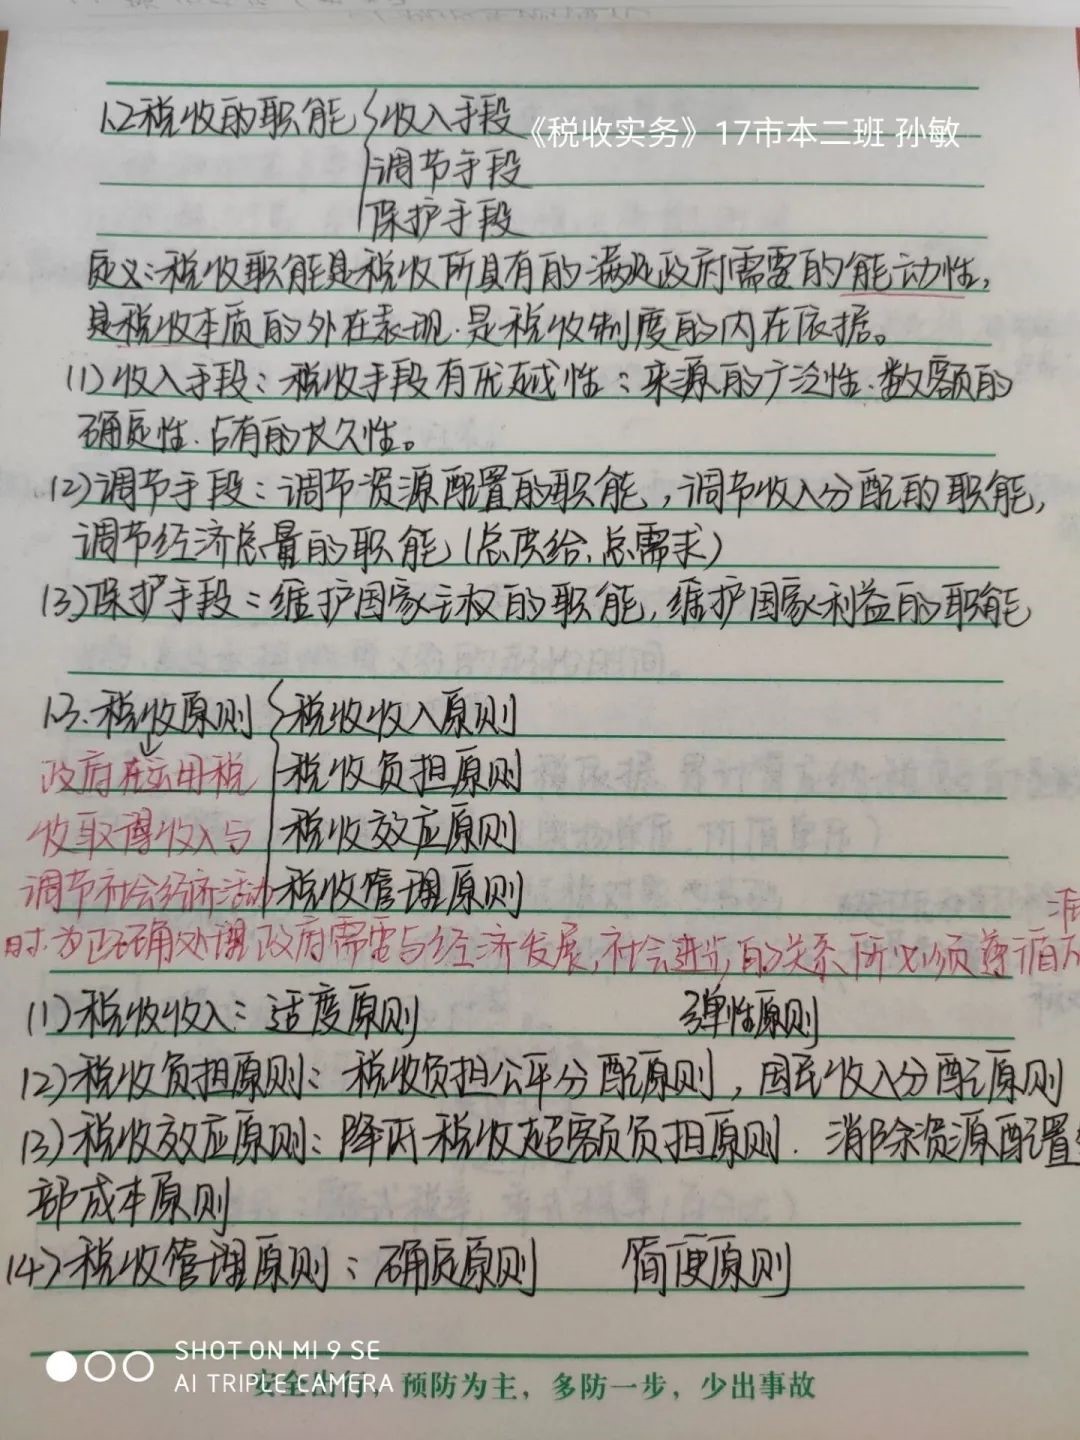 1.2税收的职能 收入手段
《税收实务》17市本二班 孙敏
调节手段
保护手段
定义:税收职能是税收所具有的满足政府需要的能动性,
是税收本质的外在表现.是税收制度的内在依据。
(1)收入手段:税收手段有优越性:来源的广泛性.数额的
确定性.占有的长久性。
(2)调节手段:调节资源配置的职能,调节收入分配的职能,
调节经济总量的职能(总供给、总需求)
(3)保护手段:维护国家主权的职能,维护国家利益的职能
1.3.税收原则 税收收入原则
政府在运用税 税收负担原则
收取得收入与 税收效应原则
调节社会经济活动 税收管理原则
时.为正确处理政府需要与经济发展,社会进步的关系所必须遵循的
准
(1)税收收入:适度原则 弹性原则
(2)税收负担原则:税收负担公平分配原则,国民收入分配原则
(3)税收效应原则:降低税收超额负担原则.消除资源配置
部成本原则
(4)税收管理原则:确定原则 简便原则
SHOT ON MI 9 SE
AI TRIPLE CAMERA
预防为主,多防一步,少出事故